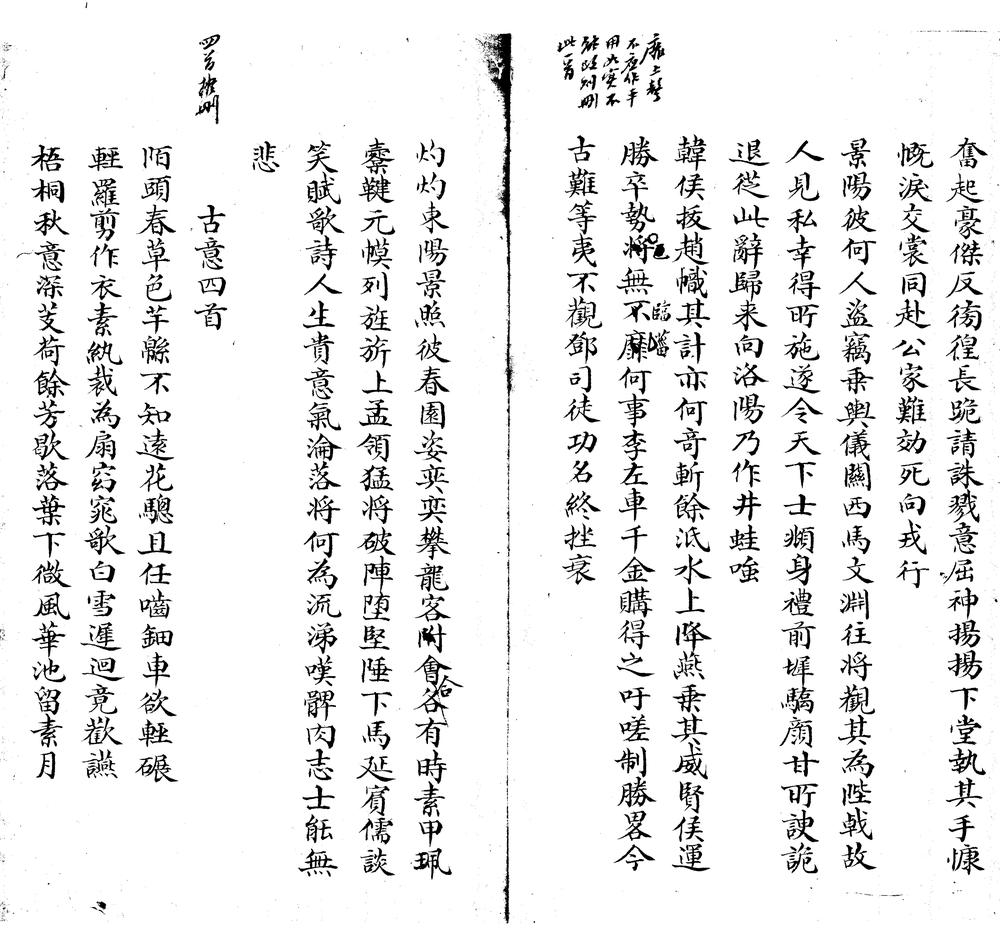 奮起豪傑反徬徨長跪請誅戮意屈神揚揚下堂執其手慷
慨淚交裳同赴公家難効死向戎行
景陽彼何人盜竊乗輿儀關西馬文淵往將觀其為陛戟故
人見私幸得所施遂令天下士頫身禮前墀驕顏甘所諛詭
退從此辭歸来向洛陽乃作井蛙嗤
韓侯拔趙幟其計亦何竒斬餘泜水上降燕乗其威賢侯運
勝卒勢將無不靡何事李左車千金購得之吁嗟制勝畧今
臨菑
古難等夷不觀鄧司徒功名終挫衰
靡上聲
不應作平
用如實不
能改則刪
此一首
灼灼東陽景照彼春園姿奕奕攀龍客附會各有時素甲珮
合
櫜鞬元幙列旌旂上孟領猛將破陣堕堅陲下馬延賓儒談
笑賦歌詩人生貴意氣淪落將何為流涕嘆髀肉志士能無
悲
古意四首
四首擬刪
陌頭春草色芊緜不知遠花驄且任嚙鈿車欲輕碾
輕羅剪作衣素紈裁為扇窈窕歌白雪遲迴竟歡讌
梧桐秋意深芰荷餘芳歇落葉下微風華池留素月